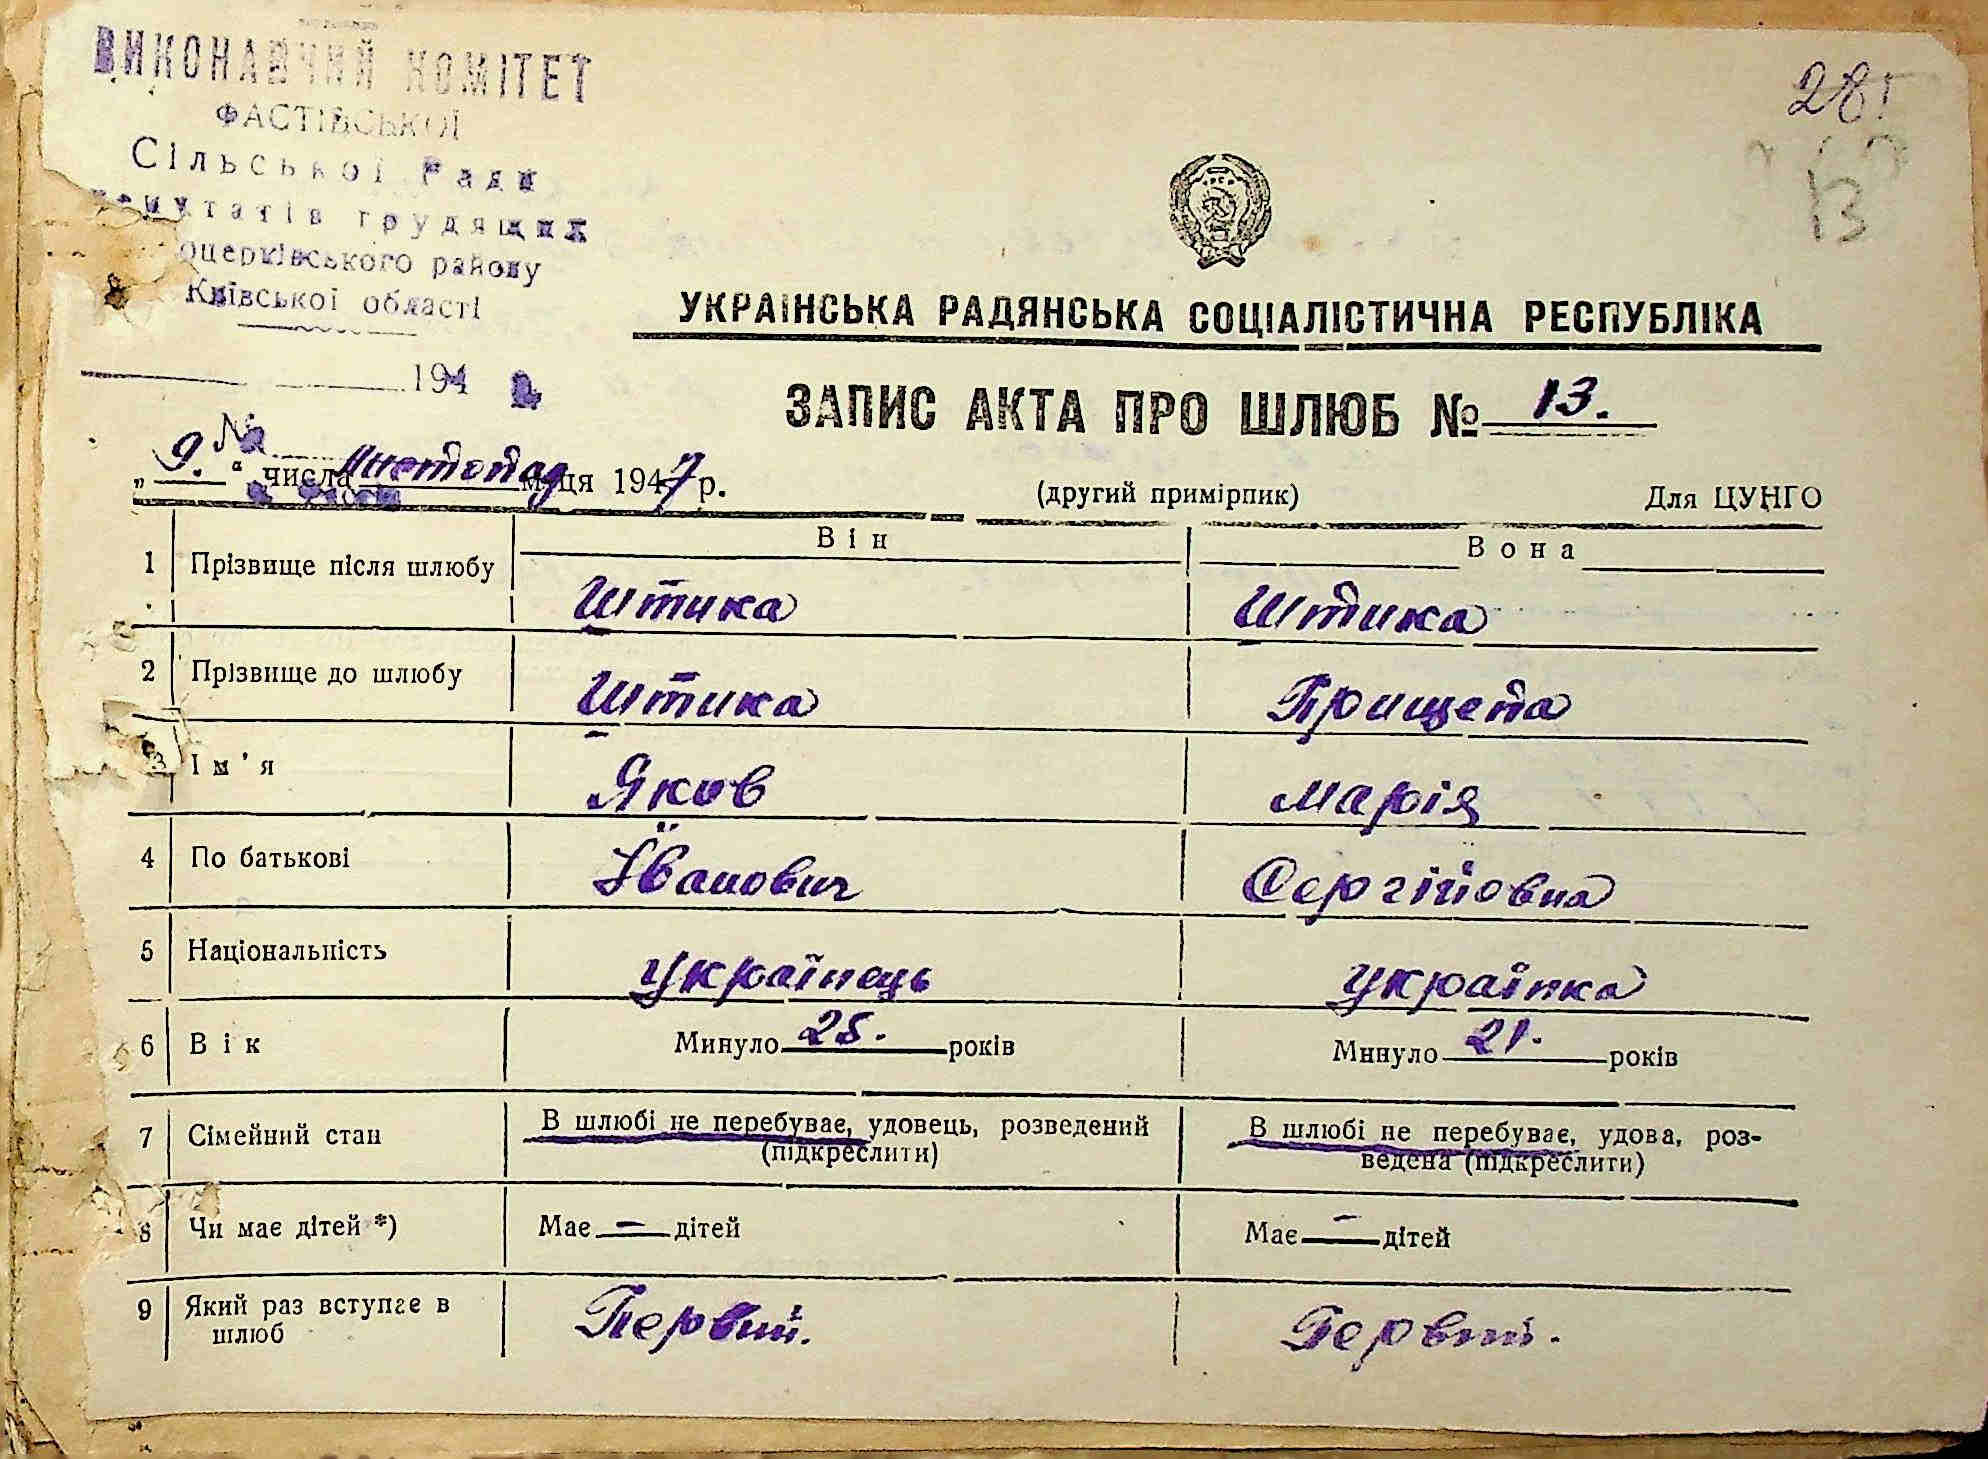 ВИКОНАВЧИЙ КОМІТЕТ
ФАСТІВСЬКОЇ
Сільської Ради
депутатів трудящих
оцерківського району
Київської області
194
№
28
13
УКРАЇНСЬКА РАДЯНСЬКА СОЦІАЛІСТИЧНА РЕСПУБЛІКА
ЗАПИС АКТА ПРО ШЛЮБ № 13.
„9.“ числа листопад м-ця 1947 р.
(другий примірник) Для ЦУНГО
Він Вона
1 Прізвище після шлюбу Штика Штика
2 Прізвище до шлюбу Штика Прищепа
3 Ім'я Яков Марія
4 По батькові Іванович Сергійовна
5 Національність українець українка
6 Вік Минуло 25. років Минуло 21. років
7 Сімейний стан В шлюбі не перебуває, удовець, розведений В шлюбі не перебуває, удова, роз-
(підкреслити) ведена (підкреслити)
8 Чи має дітей *) Має — дітей Має — дітей
9 Який раз вступає в Первий. Первий.
шлюб